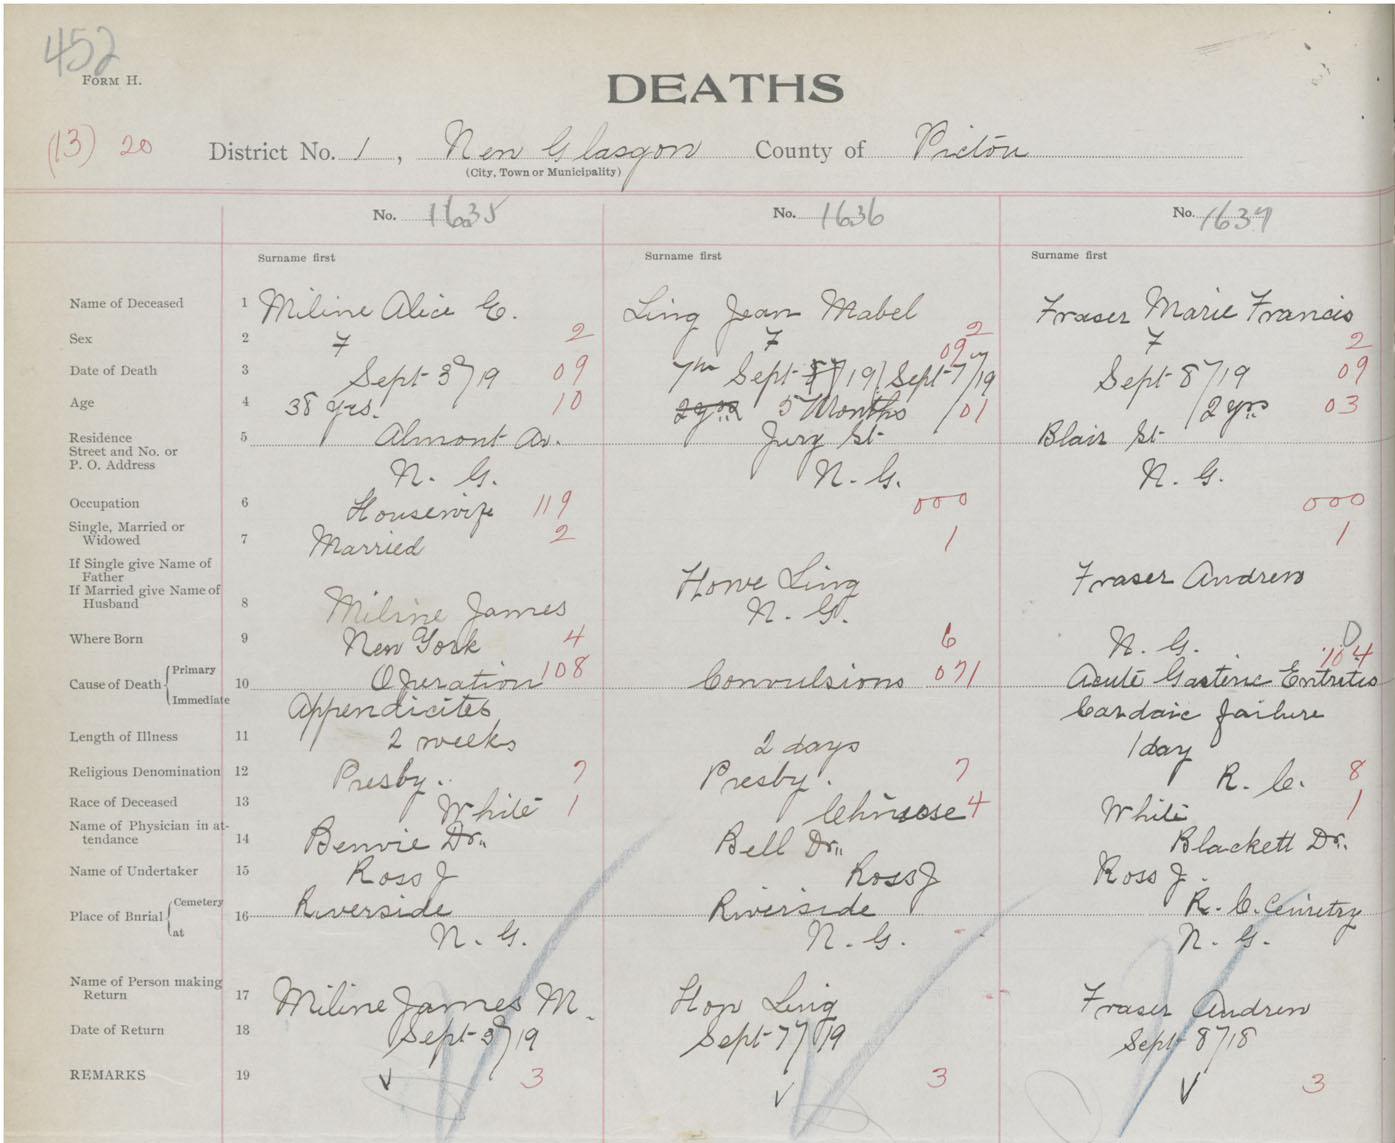 452
FORM H.
DEATHS
(13) 20 District No. 1, New Glasgow County of Pictou
(City, Town or Municipality)
No. 1635 No. 1636 No. 1637
Surname first Surname first Surname first
Name of Deceased 1 Miline Alice E. Ling Jean Mabel Fraser Marie Francis
Sex 2 F 2 F 2 F 2
Date of Death 3 Sept 3rd/19 09 7th Sept /19 / Sept 7/19 09 Sept 8/19 09
Age 4 38 yrs. 10 2 yrs 5 Months /01 /2 yrs 03
Residence 5 Almont Av. Jury St Blair St
Street and No. or
P. O. Address N. G. N. G. N. G.
Occupation 6 Housewife 119 000 000
Single, Married or
Widowed 7 Married 2 1 1
If Single give Name of
Father Howe Ling Fraser Andrew
If Married give Name of
Husband 8 Miline James N. G.
Where Born 9 New York 4 6 N. G. D
Cause of Death { Primary 10 Operation 108 Convulsions 071 Acute Gasteric Entretis 104
Immediate Appendicites Cardaic failure
Length of Illness 11 2 weeks 2 days 1 day
Religious Denomination 12 Presby. 7 Presby. 7 R. C. 8
Race of Deceased 13 White 1 Chinsose 4 White 1
Name of Physician in at-
tendance 14 Benvie Dr. Bell Dr. Blackett Dr.
Name of Undertaker 15 Ross J Ross J Ross J.
Place of Burial { Cemetery 16 Riverside Riverside R. C. Cemetry
at N. G. N. G. N. G.
Name of Person making
Return 17 Miline James M. Hon Ling Fraser Andrew
Date of Return 18 Sept 3rd/19 Sept 7/19 Sept 8/18
REMARKS 19 3 3 3